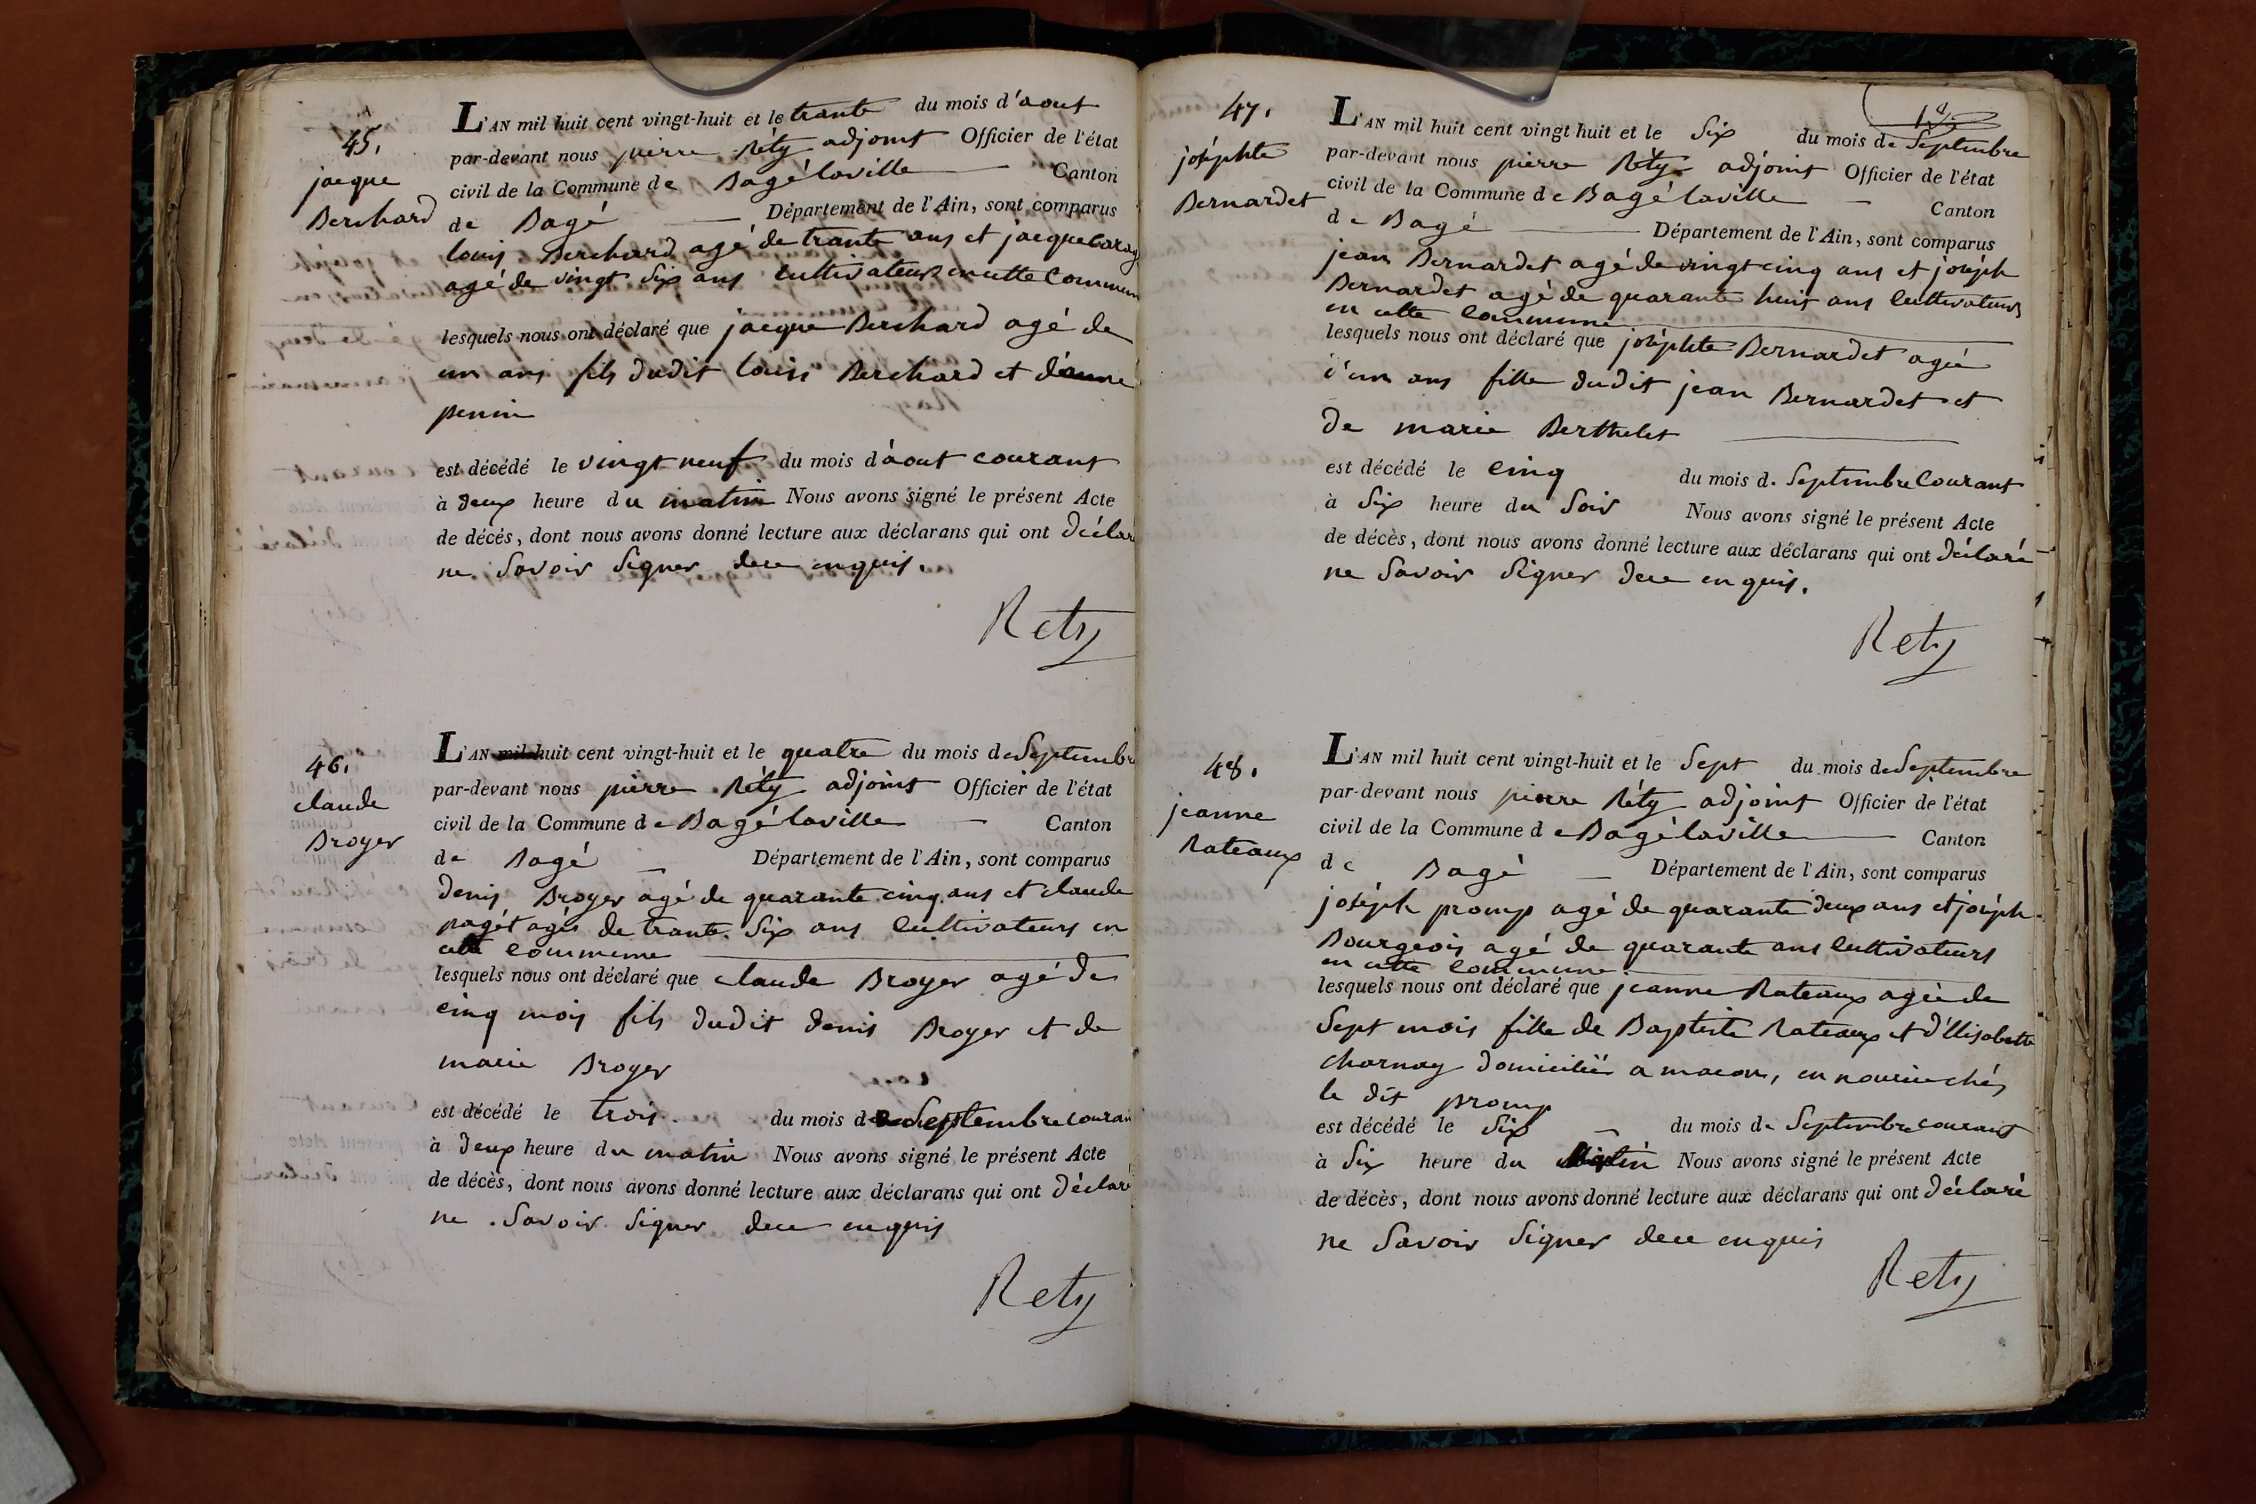 45.
jacque
Berchard
L'AN mil huit cent vingt-huit et le trante du mois d'aout
par-devant nous pierre Réty adjoint Officier de l'état
civil de la Commune de Bagé laville Canton
de Bagé Département de l'Ain, sont comparus
louis Berchard agé de trante ans et jacque
agé de vingt Six ans cultivateurs en cette Commun
lesquels nous ont déclaré que jacque Berchard agé de
un ans fils dudit louis Berchard et d'anne
perrin
est décédé le vingt neuf du mois d'aout courant
à deux heure du matin Nous avons signé le présent Acte
de décés, dont nous avons donné lecture aux déclarans qui ont déclaré
ne Savoir Signer dece enquis.
Rety
46.
claude
Broyer
L'AN mil huit cent vingt-huit et le quatre du mois de Septembre
par-devant nous pierre Réty adjoint Officier de l'état
civil de la Commune de Bagé laville Canton
de Bagé Département de l'Ain, sont comparus
denis Broyer agé de quarante cinq ans et claude
pagét agés de trante Six ans Cultivateurs en
cette commune
lesquels nous ont déclaré que claude Broyer agé de
cinq mois fils dudit denis Broyer et de
marie Broyer
est décédé le trois du mois de Septembre courant
à deux heure du matin Nous avons signé le présent Acte
de décès, dont nous avons donné lecture aux déclarans qui ont déclaré
ne Savoir Signer dece enquis
Rety
47.
joséphte
Bernardet
L'AN mil huit cent vingt huit et le Six du mois de Septembre
par-devant nous pierre Réty adjoint Officier de l'état
civil de la Commune de Bagé laville Canton
de Bagé Département de l'Ain, sont comparus
jean Bernardet agé de vingt cinq ans et joséph
Bernardet agé de quarante huit ans Cultivateurs
en cette Commune
lesquels nous ont déclaré que joséphte Bernardet agée
d'un ans fille dudit jean Bernardet et
de marie Berthelet
est décédé le cinq du mois de Septembre Courant
à Six heure du Soir Nous avons signé le présent Acte
de décès, dont nous avons donné lecture aux déclarans qui ont déclaré
ne Savoir Signer dece enquis.
Rety
48.
jeanne
Rateaux
L'AN mil huit cent vingt-huit et le Sept du mois de Septembre
par-devant nous pierre Réty adjoint Officier de l'état
civil de la Commune de Bagé laville Canton
de Bagé Département de l'Ain, sont comparus
joséph promp agé de quarante deux ans et joséph
Bourgeois agé de quarante ans Cultivateurs
en cette Commune
lesquels nous ont déclaré que jeanne Rateaux agée de
Sept mois fille de Baptiste Rateaux et d'Elisabette
charnay domiciliés a macon, en nourice chés
le dit promp
est décédé le Six du mois de Septembre courant
à Six heure du Matin Nous avons signé le présent Acte
de décès, dont nous avons donné lecture aux déclarans qui ont déclaré
ne Savoir Signer dece enquis
Rety